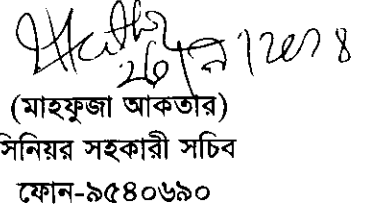 (মাহফুজা আকতার)
সিনিয়র সহকারী সচিব
ফোন-৯৫৪০৬৯০